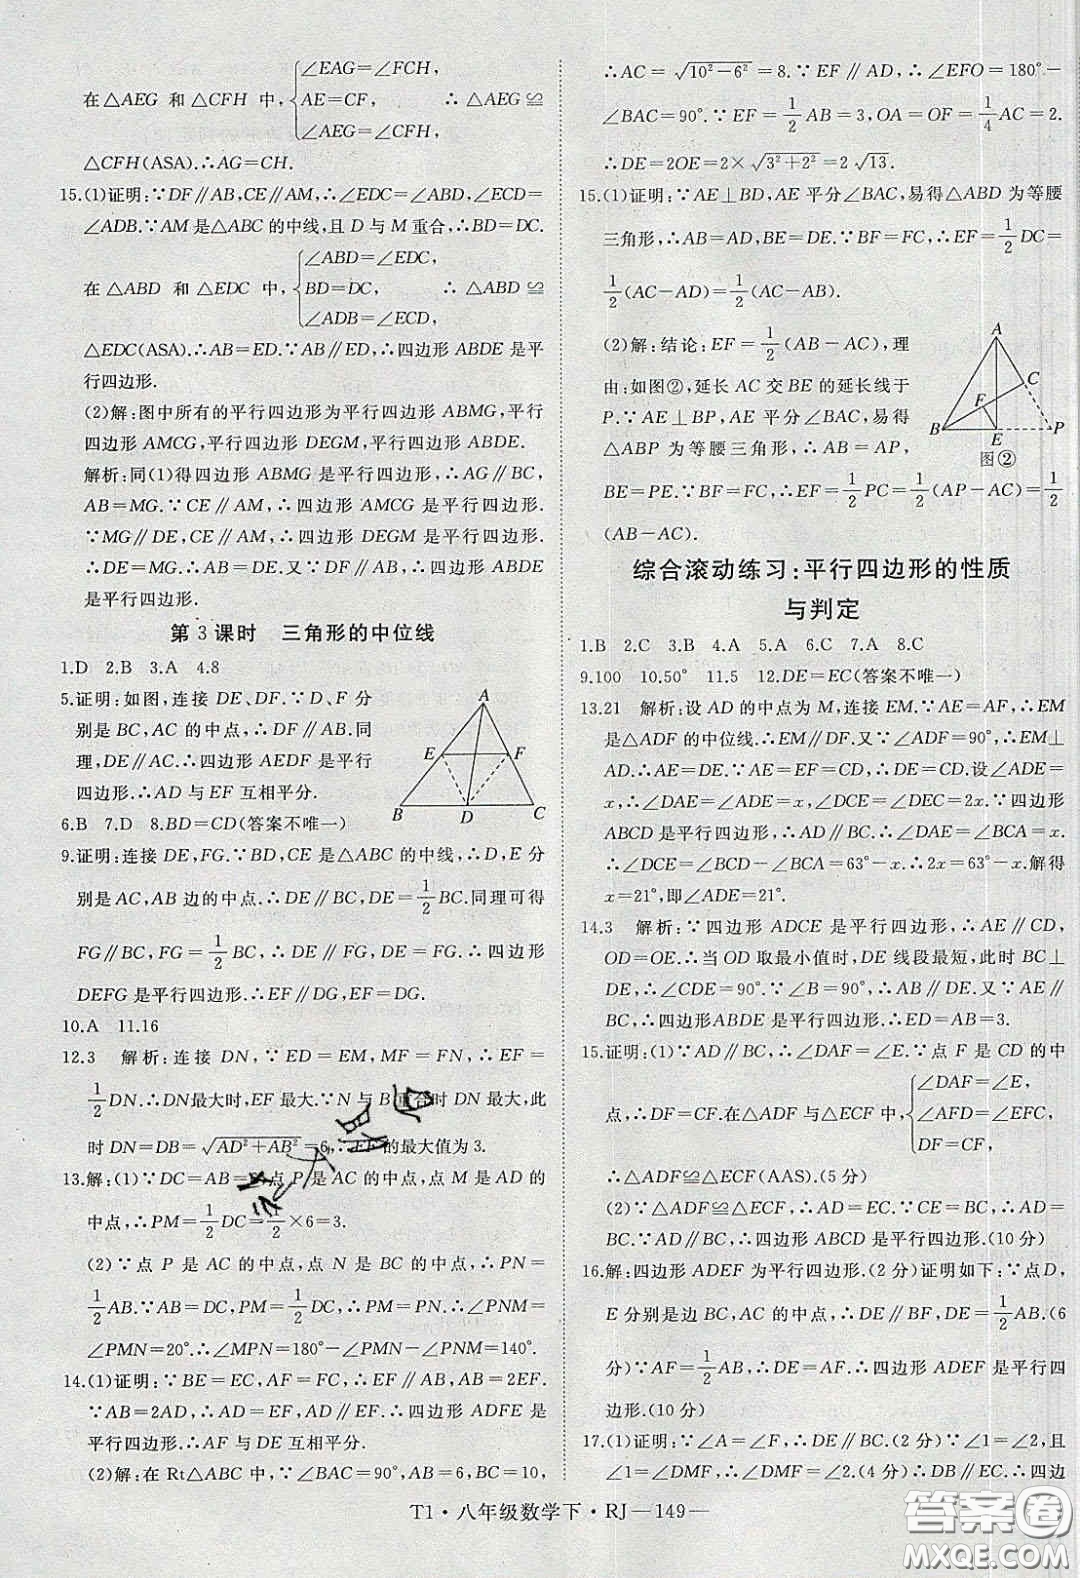 ∠EAG=∠FCH,
在△AEG 和△CFH 中, AE=CF, ∴△AEG≌
∠AEG=∠CFH,
△CFH(ASA).∴AG=CH.
15.(1)证明:∵DF∥AB,CE∥AM,∴∠EDC=∠ABD,∠ECD
=∠ADB.∵AM是△ABC的中线,且D与M重合,∴BD=DC.
∠ABD=∠EDC,
在 △ABD 和 △EDC 中, BD=DC, ∴ △ABD ≌
∠ADB=∠ECD,
△EDC(ASA).∴AB=ED.∵AB∥ED,∴四边形ABDE是平
行四边形.
(2)解:图中所有的平行四边形为平行四边形ABMG,平行
四边形AMCG,平行四边形DEGM,平行四边形ABDE.
解析:同(1)得四边形ABMG是平行四边形,∴AG∥BC,
AB=MG.∵CE∥AM,∴四边形AMCG是平行四边形.
∵MG∥DE,CE∥AM,∴四边形DEGM是平行四边形.
∴DE=MG=AB.又∵AB∥DE,∴四边形ABDE
是平行四边形.
第3课时 三角形的中位线
1.D 2.B 3.A 4.8
5.证明:如图,连接DE、DF.∵D、F分
别是BC,AC的中点,∴DF∥AB.同
理,DE∥AC.∴四边形AEDF是平行
四边形.∴AD与EF互相平分.
A
E F
B D C
6.B 7.D 8.BD=CD(答案不唯一)
9.证明:连接DE,FG.∵BD,CE是△ABC的中线,∴D,E分
别是AC,AB边的中点.∴DE∥BC,DE=1/2BC.同理可得
FG∥BC,FG=1/2BC,∴DE∥FG,DE=FG.∴四边形
DEFG是平行四边形.∴EF∥DG,EF=DG.
10.A 11.16
12.3 解析:连接DN,∵ED=EM,MF=FN,∴EF=
1/2DN.∴DN最大时,EF最大.∵N与B重合时DN最大,此
时DN=DB=√(AD²+AB²)=6,∴EF的最大值为3.
13.解:(1)∵DC=AB=6,点P是AC的中点,点M是AD的
中点,∴PM=1/2DC=1/2×6=3.
(2)∵点P是AC的中点,点N是BC的中点,∴PN=
1/2AB.∵AB=DC,PM=1/2DC,∴PM=PN,∴∠PNM=
∠PMN=20°.∴∠MPN=180°-∠PMN-∠PNM=140°.
14.(1)证明:∵BE=EC,AF=FC,∴EF∥AB,AB=2EF.
∵AB=2AD,∴AD=EF,AD∥EF.∴四边形ADFE是
平行四边形.∴AF与DE互相平分.
(2)解:在Rt△ABC中,∵∠BAC=90°,AB=6,BC=10,
∴AC=√(10²-6²)=8.∵EF∥AD,∴∠EFO=180°-
∠BAC=90°.∵EF=1/2AB=3,OA=OF=1/4AC=2.
∴DE=2OE=2×√(3²+2²)=2√13.
15.(1)证明:∵AE⊥BD,AE平分∠BAC,易得△ABD为等腰
三角形,∴AB=AD,BE=DE.∵BF=FC,∴EF=1/2DC=
1/2(AC-AD)=1/2(AC-AB).
(2)解:结论:EF=1/2(AB-AC),理
由:如图②,延长AC交BE的延长线于
P.∵AE⊥BP,AE平分∠BAC,易得
△ABP为等腰三角形,∴AB=AP,
A
C
F
B E P
图②
BE=PE.∵BF=FC,∴EF=1/2PC=1/2(AP-AC)=1/2
(AB-AC).
综合滚动练习:平行四边形的性质
与判定
1.B 2.C 3.B 4.A 5.A 6.C 7.A 8.C
9.100 10.50° 11.5 12.DE=EC(答案不唯一)
13.21 解析:设AD的中点为M,连接EM.∵AE=AF,∴EM
是△ADF的中位线.∴EM∥DF.又∵∠ADF=90°,∴EM⊥
AD.∴AE=DE.又∵AE=EF=CD,∴DE=CD.设∠ADE=
x,∴∠DAE=∠ADE=x,∴∠DCE=∠DEC=2x.∵四边形
ABCD是平行四边形,∴BC∥AD.∴∠DAE=∠BCA=x.
∴∠DCE=∠BCD-∠BCA=63°-x.∴2x=63°-x.解得
x=21°,即∠ADE=21°.
14.3 解析:∵四边形ADCE是平行四边形,∴AE∥CD,
OD=OE.∴当OD取最小值时,DE线段最短,此时BC⊥
DE,∴∠CDE=90°.∵∠B=90°,∴AB∥DE.又∵AE∥
CD,∴四边形ABDE是平行四边形.∴DE=AB=3.
15.证明:(1)∵AD∥BC,∴∠DAF=∠E.∵点F是CD的中
∠DAF=∠E,
点,∴DF=CF.在△ADF与△ECF中, ∠AFD=∠EFC,
DF=CF,
∴△ADF≌△ECF(AAS).(5分)
(2)∵△ADF≌△ECF,∴AD=EC.∵CE=BC,∴AD=
BC.∵AD∥BC,∴四边形ABCD是平行四边形.(10分)
16.解:四边形ADEF为平行四边形.(2分)证明如下:∵点D,
E分别是边BC,AC的中点,∴DE∥BF,DE=1/2AB.(6
分)∵AF=1/2AB,∴DE=AF,∴四边形ADEF是平行四
边形.(10分)
17.(1)证明:∵∠A=∠F,∴DF∥AC.(2分)∵∠1=∠2,且
∠1=∠DMF,∴∠2=∠DMF.∴DB∥CE.(4分)∴四边
T1·八年级数学下·RJ—149—
答案圈
MXQE.COM